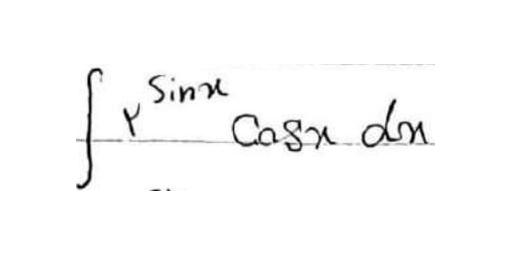 ∫ ۲^sinx Cosx dx